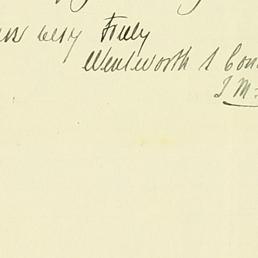 very Truly
Wentworth &
J M